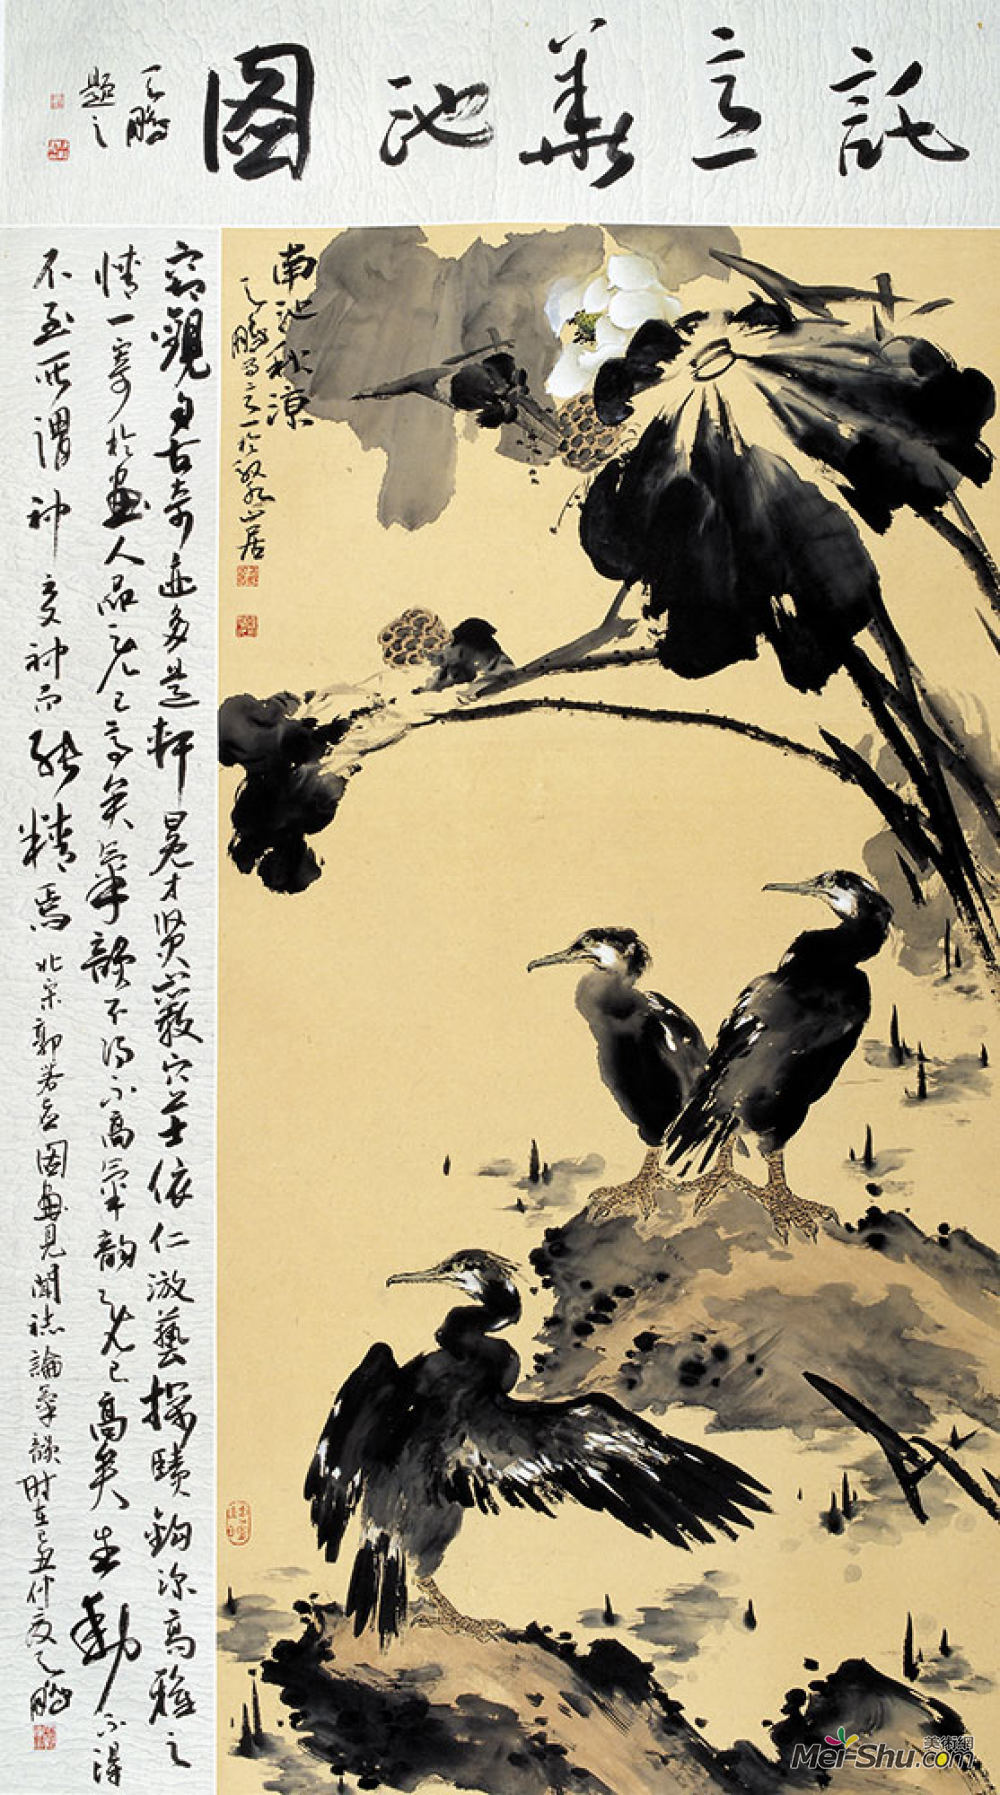 託意華池圖
鵬
題之
南池秋涼
竊觀自古奇迹多是軒冕才賢巖穴上士依仁游藝探賾鉤深高雅之
情一寄於畫人品既已高矣氣韻不得不高氣韻既已高矣生動不得
不至所謂神之又神而能精焉 北宋郭若虛圖畫見聞誌論氣韻 時在己丑仲夏 鵬
美術網
Mei-Shu.com